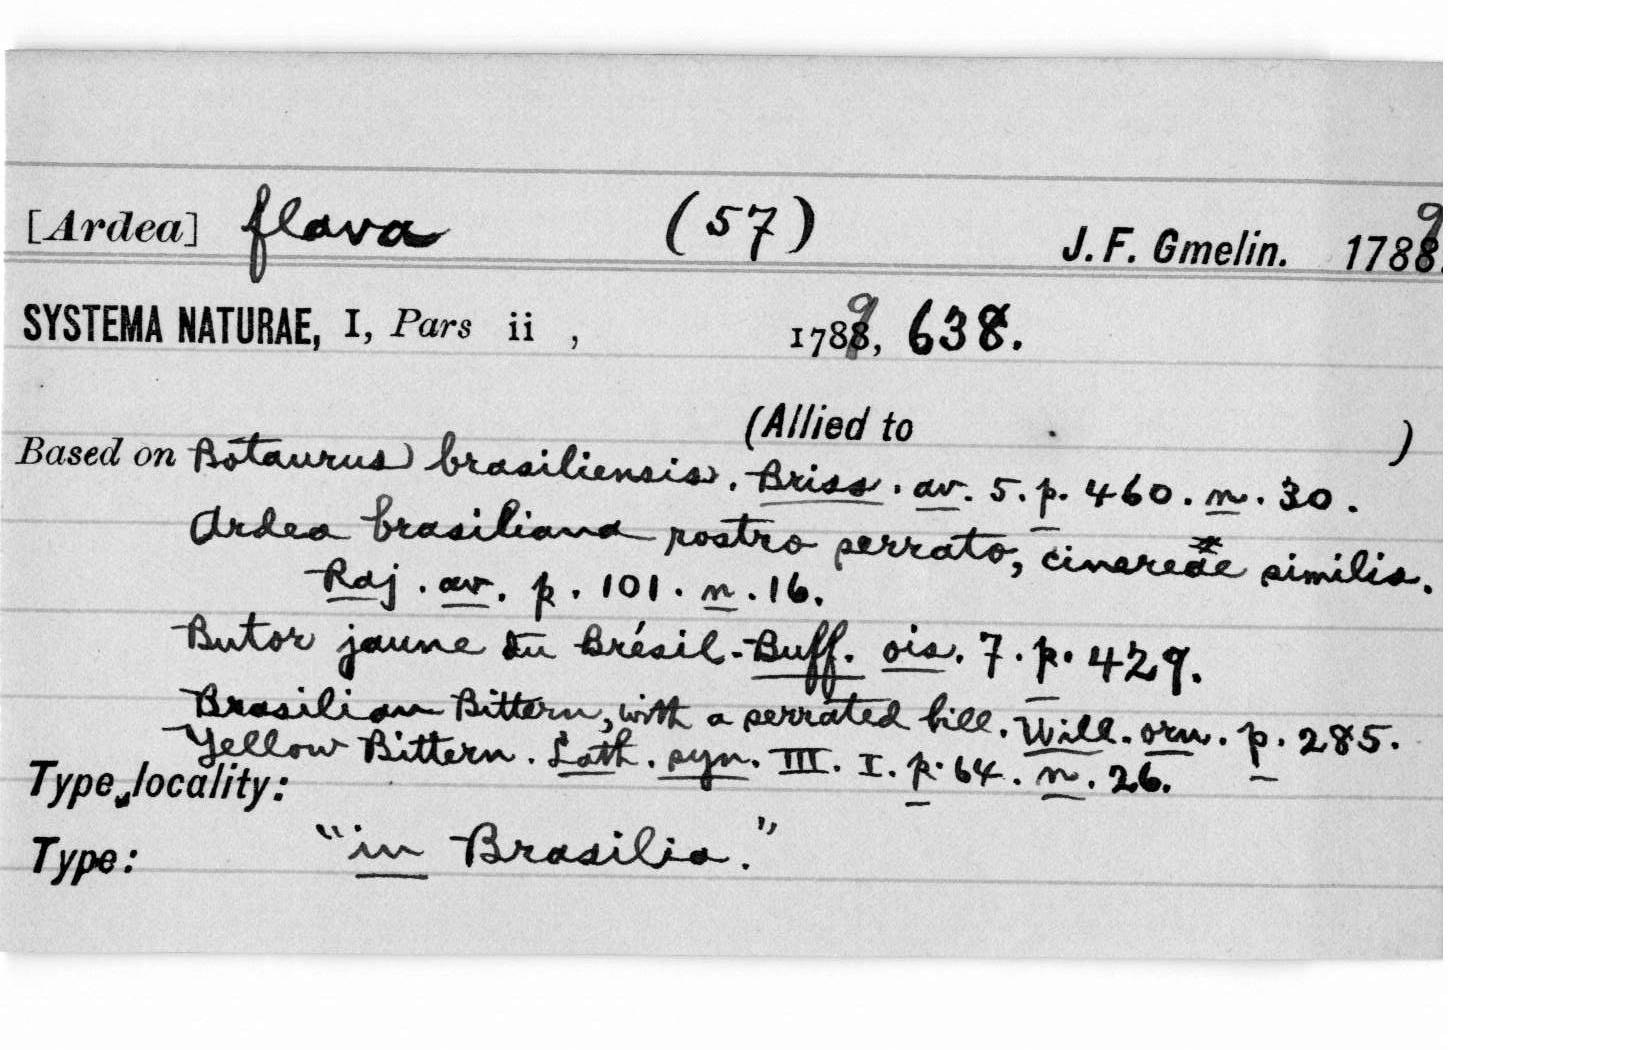 [Ardea] flava (57) J. F. Gmelin. 1789.
SYSTEMA NATURAE, I, Pars ii , 1789, 638.
(Allied to )
Based on Botaurus brasiliensis. Briss. av. 5. p. 460. n. 30.
Ardea brasiliana rostro serrato, cinereae similis.
Raj. av. p. 101. n. 16.
Butor jaune du Brésil. Buff. ois. 7. p. 429.
Brasilian Bittern, with a serrated bill. Will. orn. p. 285.
Yellow Bittern. Lath. syn. III. I. p. 64. n. 26.
Type locality:
Type: "in Brasilia."